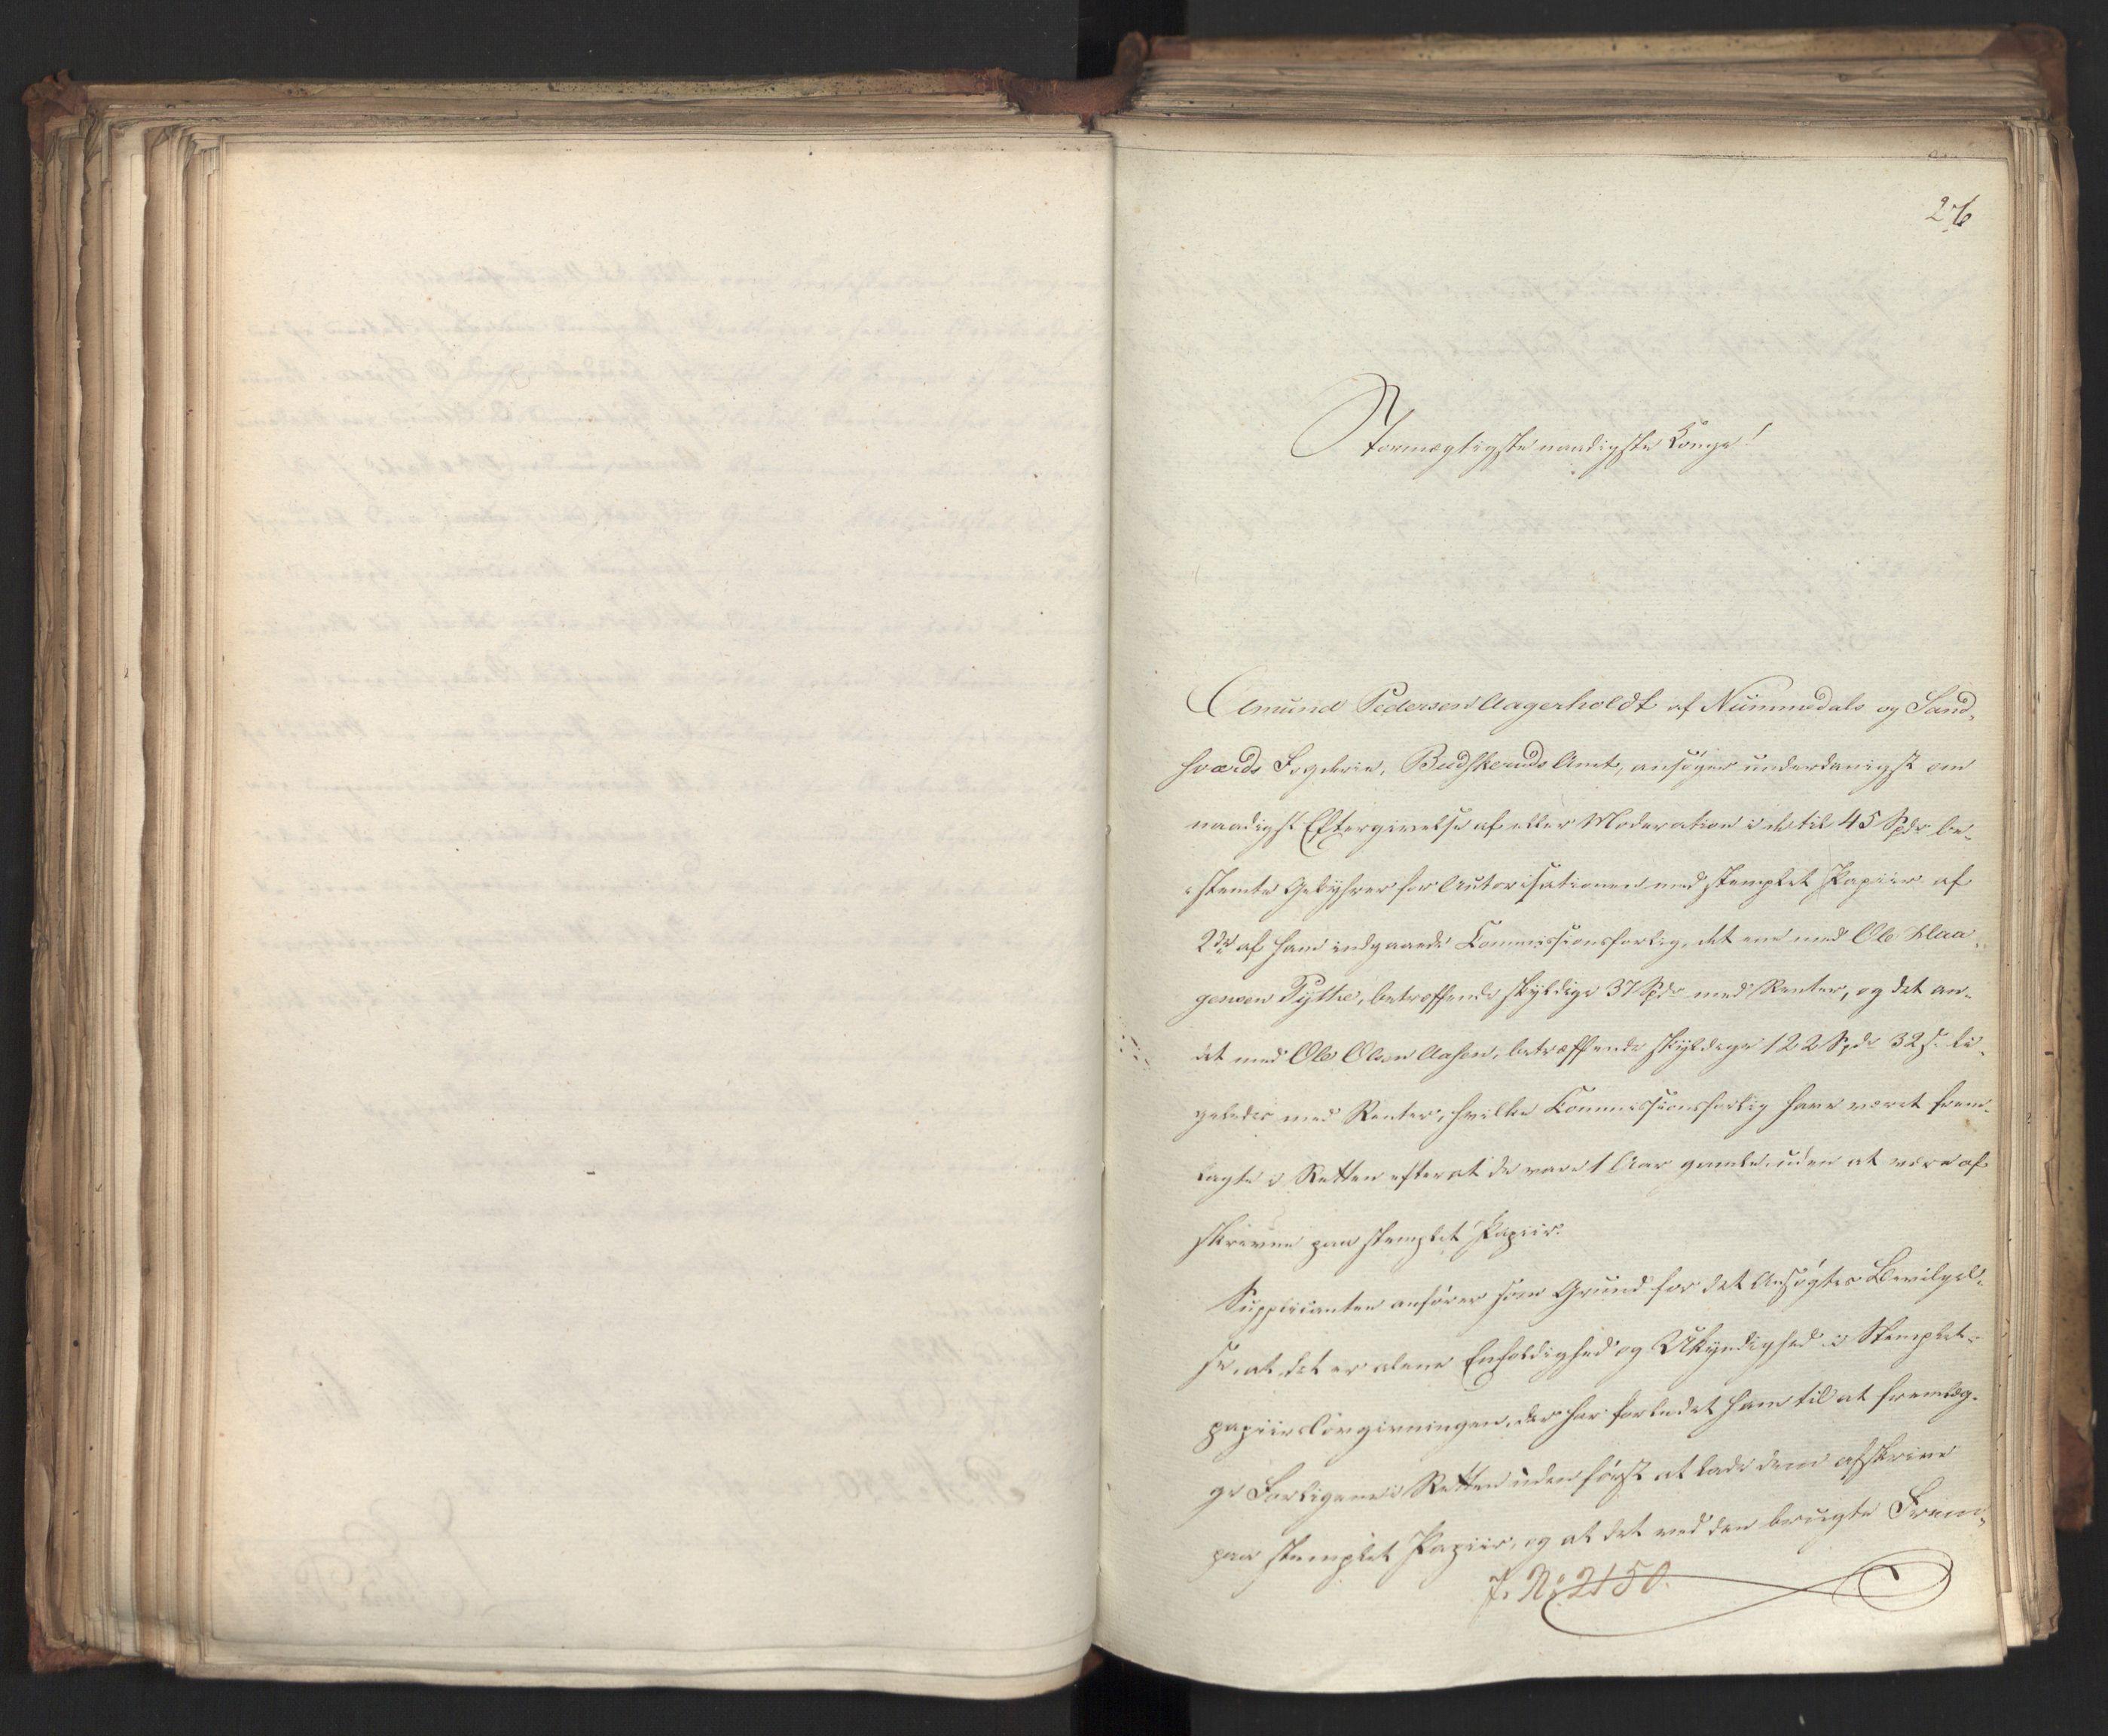 26
Stormægtigste naadigste Konge!
Amund Pedersen Aagerholdt af Nummedals og Sand-
sværds Fogderie, Budskeruds Amt, ansøger underdanigst om
naadigst Eftergivelse af eller Moderation i de til 45 Spdr be-
stemte Gebyhrer for Autorisationen med stemplet Papiir af
2de af ham indgaaede Commissionsforlig, det ene med Ole Haa-
gensen Tythe, betræffende skyldige 37 Spdr med Renter, og det an-
det med Ole Olsen Aasen, betræffende skyldige 122 Spdr 32 s. li-
geledes med Renter, hvilke Commissionsforlig have været frem-
lagte i Retten efterat de vare 1 Aar gamle, uden at være af-
skrevne paa stemplet Papiir.
Supplicanten anfører som Grund for det Ansøgtes Bevilgel-
se, at det er alene Enfoldighed og Ukyndighed i Stemplet-
papiirs Lovgivningen, der har forledet ham til at fremlæg-
ge Forligene i Retten uden først at lade dem afskrive
paa stemplet Papiir, og at det ved den brugte Frem-
J. No 2150.